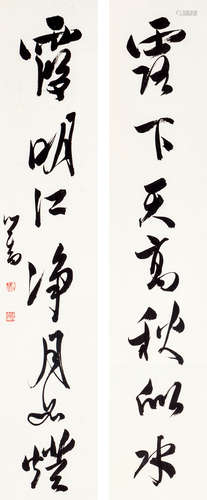 露下天高秋似水
霞明江净月如燈
心畬